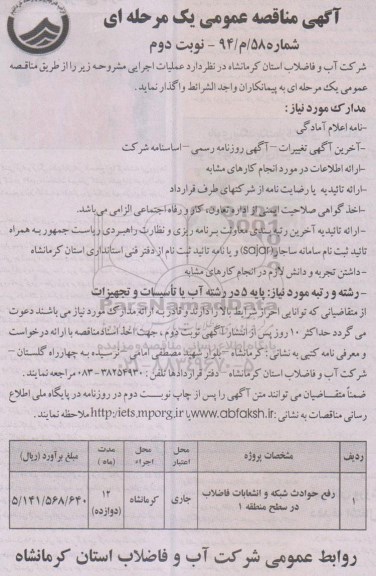 آگهی مناقصه عمومی یک مرحله ای
شماره ۵۸/م/۹۴ - نوبت دوم
شرکت آب و فاضلاب استان کرمانشاه در نظر دارد عملیات اجرایی مشروحه زیر را از طریق مناقصه
عمومی یک مرحله ای به پیمانکاران واجد الشرائط واگذار نماید.
مدارک مورد نیاز:
-نامه اعلام آمادگی
-آخرین آگهی تغییرات - آگهی روزنامه رسمی - اساسنامه شرکت
-ارائه اطلاعات در مورد انجام کارهای مشابه
-ارائه تائیدیه یا رضایت نامه از شرکتهای طرف قرارداد
-اخذ گواهی صلاحیت ایمنی از اداره تعاون، کار و رفاه اجتماعی الزامی می‌باشد.
-ارائه تائیدیه آخرین رتبه بندی معاونت برنامه ریزی و نظارت راهبردی ریاست جمهور به همراه
تائید ثبت نام سامانه ساجار(sajar) و یا نامه تائید ثبت نام از دفتر فنی استانداری استان کرمانشاه
-داشتن تجربه و دانش لازم در انجام کارهای مشابه
-رشته و رتبه مورد نیاز: پایه ۵ در رشته آب یا تأسیسات و تجهیزات
از متقاضیانی که توانایی احراز شرایط بالا را دارند و قادر به ارائه مدارک مورد نیاز می باشند دعوت
می گردد حداکثر ۱۰ روز پس از انتشار آگهی نوبت دوم ، جهت اخذ اسناد مناقصه با ارائه درخواست
و معرفی نامه کتبی به نشانی : کرمانشاه - بلوار شهید مصطفی امامی - نرسیده به چهارراه گلستان -
شرکت آب و فاضلاب استان کرمانشاه - دفتر قراردادها تلفن : ۳۸۲۵۴۹۳۰-۰۸۳ مراجعه نمایند.
ضمناً متقاضیان می توانند متن آگهی را پس از چاپ نوبت دوم در روزنامه در پایگاه ملی اطلاع
رسانی مناقصات به نشانی : www.abfaksh.ir یا http:/iets.mporg.ir ملاحظه نمایند.
ParsNamadData
ردیف مشخصات پروژه محل اعتبار محل اجراء مدت (ماه) مبلغ برآورد (ریال)
۱ رفع حوادث شبکه و انشعابات فاضلاب در سطح منطقه ۱ جاری کرمانشاه ۱۲ (دوازده) ۵/۱۴۱/۵۶۸/۶۴۰
روابط عمومی شرکت آب و فاضلاب استان کرمانشاه